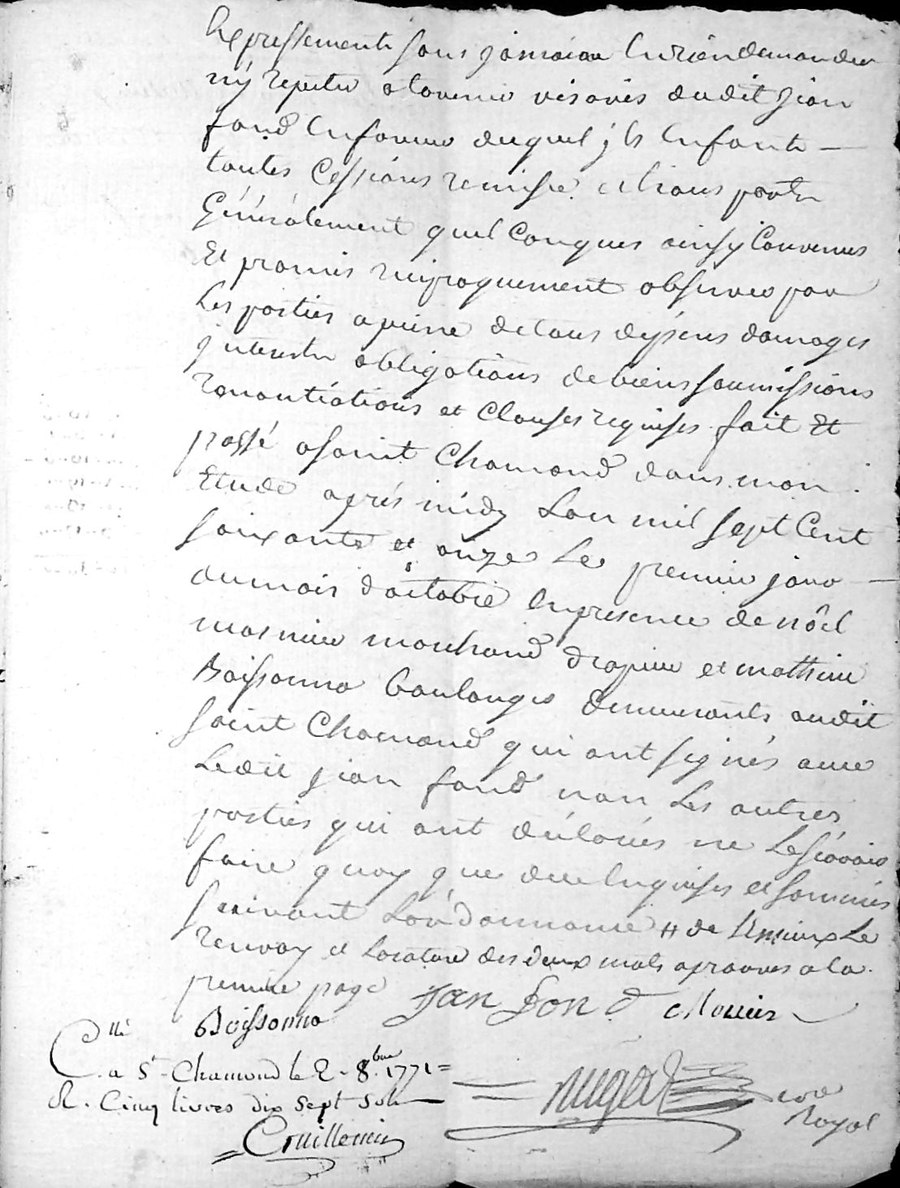 Expressement sans jamais en rien demander
ny repeter a lavenir visavis dudit jean
fond en faveur duquel jls en font
toutes Cessions remise et
Généralement quel Conques ainsy Convenus
Et promis reciproquement observer par
Les parties a peine de tous depens domages
jnterets obligations de biens soumissions
renontiations et Clauses requises fait Et
passé a saint Chamond dans mon
Etude aprés midy Lan mil sept Cent
soixante et onze Le premier jour
du mois d'octobre en presence de nöel
marchand drapier et mathieu
Boissonna boulanger demeurants audit
saint Chamond qui ont signés avec
Ledit jean fond non Les autres
parties qui ont declarés ne Le sçavoir
faire quoy que de ce enquises et sommés
suivant Lordonnance # de
renvoy et La rature des deux mots aprouves a la
premiere page jan fon d
Boissonna
C.llé
a St. Chamond le 2. 8.bre 1771
R. Cinq livres dix sept sols
nore
Royal